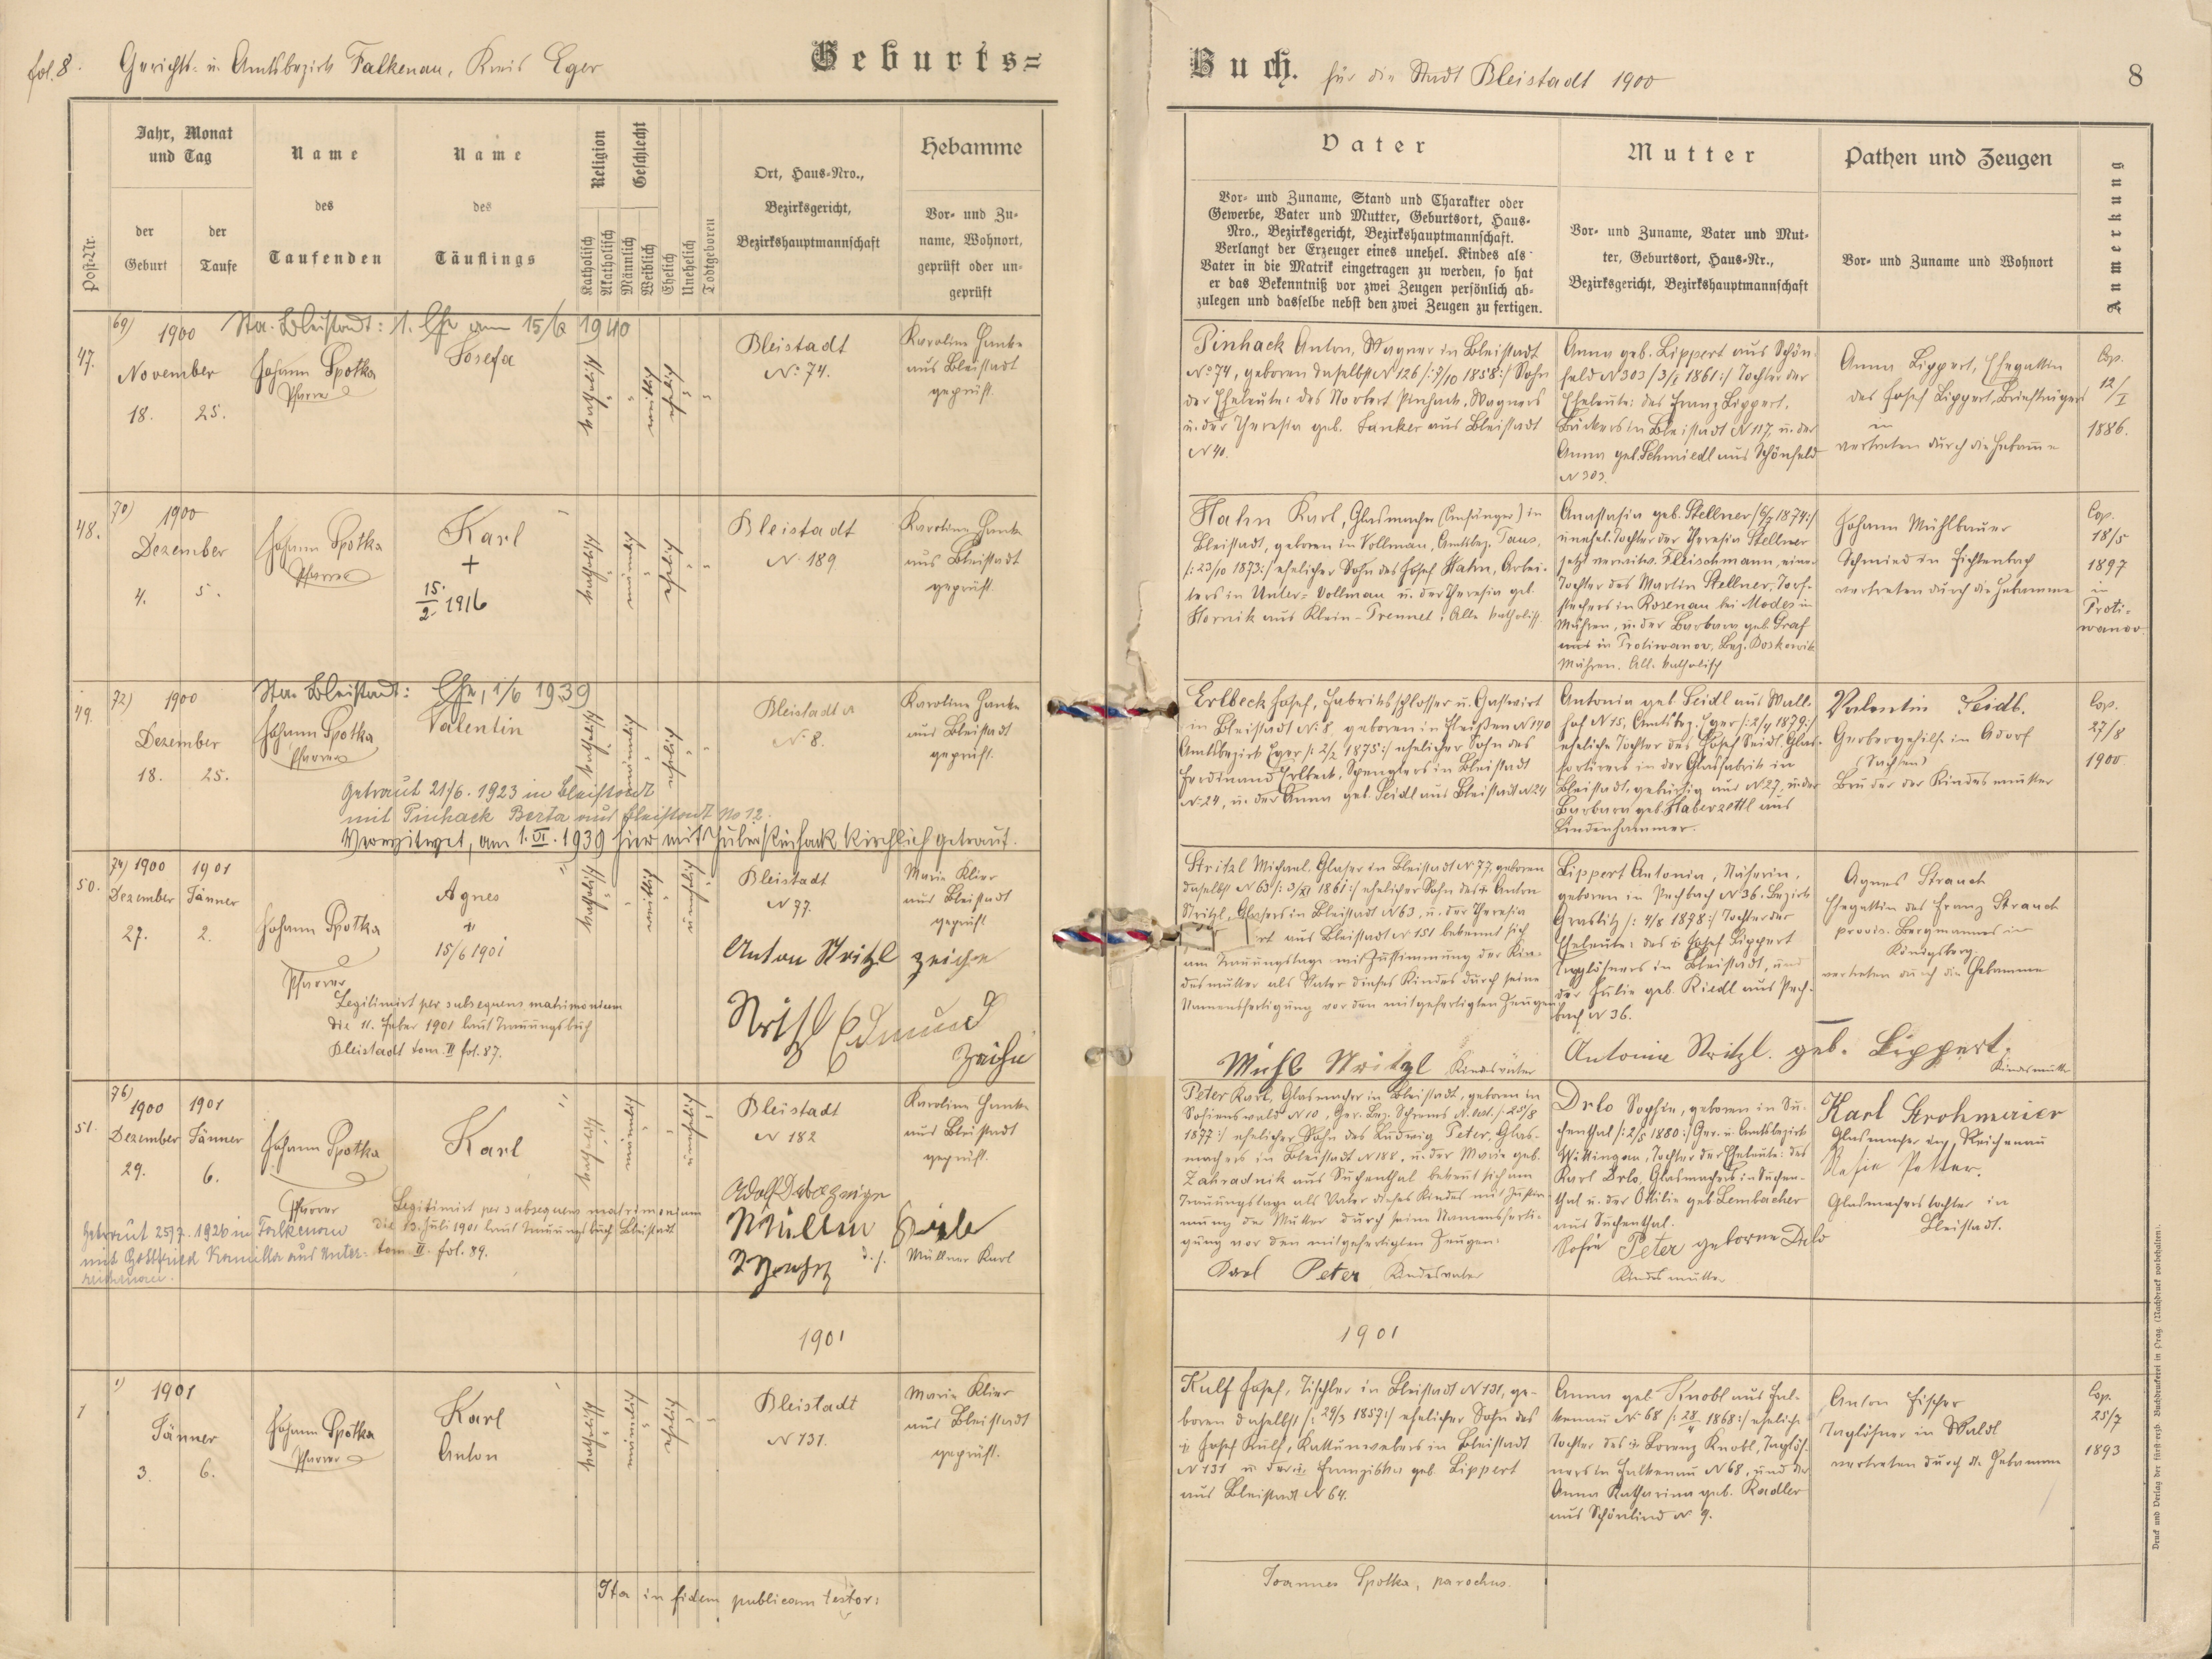 fol. 8. Gerichts- u. Amtsbezirk Falkenau, Kreis Eger
Geburts=
Jahr, Monat und Tag
der Geburt
der Taufe
Post-Nr.
Name des Taufenden
Name des Täuflings
Religion
Katholisch
Akatholisch
Geschlecht
Männlich
Weiblich
Ehelich
Unehelich
Todtgeboren
Ort, Haus-Nro.,
Bezirksgericht,
Bezirkshauptmannschaft
Hebamme
Vor- und Zu-
name, Wohnort,
geprüft oder un-
geprüft
69) 1900
Sta. Bleistadt: 1. Ehe am 15/6 1940
47.
November
18. 25.
Johann Spotka
Pfarrer
Josefa
katholisch
weiblich
ehelich
Bleistadt
No. 74.
Karoline Hanke
aus Bleistadt
geprüft.
70) 1900
48.
Dezember
4. 5.
Johann Spotka
Pfarrer
Karl
+
15./2. 1916
katholisch
männlich
ehelich
Bleistadt
N. 189
Karoline Hanke
aus Bleistadt
geprüft.
72) 1900
Sta. Bleistadt: Ehe, 1/6 1939
49.
Dezember
18. 25.
Johann Spotka
Pfarrer
Valentin
katholisch
männlich
ehelich
Bleistadt
N. 8.
Karoline Hanke
aus Bleistadt
geprüft.
Getraut 21/6. 1923 in Bleistadt
mit Pinhack Berta aus Bleistadt No 12.
Verwitwet, am 1. VI. 1939 hier mit Julie Pinhack kirchlich getraut.
74) 1900 1901
50.
Dezember Jänner
27. 2.
Johann Spotka
Pfarrer
Agnes
+
15/6 1901
katholisch
weiblich
unehelich
Bleistadt
N 77.
Marie Klier
aus Bleistadt
geprüft
Anton Stritzl Zeuge
Stritzl Edmund
Zeuge
Legitimirt per subsequens matrimonium
die 11. Feber 1901 laut Trauungsbuch
Bleistadt tom. II fol. 87.
76) 1900 1901
51.
Dezember Jänner
29. 6.
Johann Spotka
Pfarrer
Karl
katholisch
männlich
unehelich
Bleistadt
N 182
Karoline Hanke
aus Bleistadt
geprüft.
Müllner Karl
Legitimirt per subsequens matrimonium
die 13. Juli 1901 laut Trauungsbuch Bleistadt
tom. II. fol. 89.
Getraut 25/7. 1926 in Falkenau
mit Gottfried Kamilla aus Unter-
reichenau.
1901
1) 1901
1
Jänner
3. 6.
Johann Spotka
Pfarrer
Karl
Anton
katholisch
männlich
ehelich
Bleistadt
N 131.
Marie Klier
aus Bleistadt
geprüft.
Ita in fidem publicam testor:
Buch. für die Stadt Bleistadt 1900
8
Vater
Vor- und Zuname, Stand und Charakter oder
Gewerbe, Vater und Mutter, Geburtsort, Haus-
Nro., Bezirksgericht, Bezirkshauptmannschaft.
Verlangt der Erzeuger eines unehel. Kindes als
Vater in die Matrik eingetragen zu werden, so hat
er das Bekenntniß vor zwei Zeugen persönlich ab-
zulegen und dasselbe nebst den zwei Zeugen zu fertigen.
Mutter
Vor- und Zuname, Vater und Mut-
ter, Geburtsort, Haus-Nr.,
Bezirksgericht, Bezirkshauptmannschaft
Pathen und Zeugen
Vor- und Zuname und Wohnort
Anmerkung
Pinhack Anton, Wagner in Bleistadt
No. 74, geboren daselbst N 126 /:3/10 1858:/ Sohn
der Eheleute: des Norbert Pinhack, Wagners
u. der Theresia geb. Lanker aus Bleistadt
N 40.
Anna geb. Lippert aus Schön-
feld N 303 /3/1 1861:/ Tochter der
Eheleute: des Franz Lippert,
Bäckers in Bleistadt N 117, u. der
Anna geb. Schmiedl aus Schönfeld
N 303.
Anna Lippert, Ehegattin
des Josef Lippert, Briefträgers
in
vertreten durch die Hebamme
Cop.
12/I
1886.
Hahn Karl, Glasmacher (Anfänger) in
Bleistadt, geboren in Vollmau, Amtsbez. Taus,
/:23/10 1873:/ ehelicher Sohn des Josef Hahn, Arbei-
ters in Unter-Vollmau u. der Theresia geb.
Hornik aus Klein-Prennet; Alle katholisch.
Anastasia geb. Stellner /6/7 1874:/
unehel. Tochter der Theresia Stellner
jetzt verwitw. Fleischmann, eine
Tochter des Martin Stellner, Torf-
stechers in Rosenau bei Modes in
Mähren, u. der Barbara geb. Graf
aus in Protiwanov, Bez. Boskowitz
Mähren. All. katholisch
Johann Mühlbauer
Schmied in Fichtenbach
vertreten durch die Hebamme
Cop.
18/5
1897
in
Proti-
wanov.
Erlbeck Josef, Fabriksschlosser u. Gastwirt
in Bleistadt N. 8, geboren in Fleißen N 190
Amtsbezirk Eger /:2/2 1875:/ ehelicher Sohn des
Ferdinand Erlbeck, Spenglers in Bleistadt
N. 24, u. der Anna geb. Seidl aus Bleistadt N 24
Antonia geb Seidl aus Wall-
hof N 15, Amtsbez. Eger /:2/4 1879:/
eheliche Tochter des Josef Seidl, Glas-
sortirers in der Glasfabrik in
Bleistadt, gebürtig aus N 27, u. der
Barbara geb. Haberzettl aus
Lindenhammer.
Valentin Seidl.
Gerbergehilfe in Adorf
(Sachsen)
Bruder der Kindesmutter
Cop.
27/8
1900
Stritzl Michael, Glaser in Bleistadt N 77, geboren
daselbst N 63 /:3/XI 1861:/ ehelicher Sohn des + Anton
Stritzl, Glasers in Bleistadt N 63, u. der Theresia
aus Bleistadt N 151 bekennt sich
am Trauungstage mit Zustimmung der Kin-
desmutter als Vater dieses Kindes durch seine
Namensfertigung vor den mitgefertigten Zeugen
Michl Stritzl Kindesvater
Lippert Antonia, Näherin,
geboren in Pechbach N 36. Bezirk
Graslitz /:4/8 1878:/ Tochter der
Eheleute: des + Josef Lippert
Taglöhners in Bleistadt, und
der Julie geb. Riedl aus Pech-
bach N 36.
Antonia Stritzl. geb. Lippert.
Kindesmutter
Agnes Strauch
Ehegattin des Franz Strauch
provis. Bergmannes in
Königsberg.
vertreten durch die Hebamme
Peter Karl, Glasmacher in Bleistadt, geboren in
Sofienswald N 10, Ger. Bez. Schrems N. öst. /:25/8
1877:/ ehelicher Sohn des Ludwig Peter, Glas-
machers in Bleistadt N 188, u. der Marie geb.
Zahradnik aus Suchenthal bekennt sich am
Trauungstage als Vater dieses Kindes mit Zustim-
mung der Mutter durch seine Namensferti-
gung vor den mitgefertigten Zeugen:
Karl Peter Kindesvater
Drlo Sophie, geboren in Su-
chenthal /:2/5 1880:/ Ger. u. Amtsbezirk
Wittingau, Tochter der Eheleute: des
Karl Drlo, Glasmachers in Suchen-
thal u. der Ottilie geb. Lembacher
aus Suchenthal.
Sofie Peter geborne Drlo
Kindesmutter
Karl Strohmeier
Glasmacher in Reichenau
Rosie Potter.
Glasmacherstochter in
Bleistadt.
1901
Kulf Josef, Tischler in Bleistadt N 131, ge-
boren daselbst /:29/3 1857:/ ehelicher Sohn des
+ Josef Kulf, Kattunwebers in Bleistadt
N 131 u der + Franziska geb. Lippert
aus Bleistadt N 64.
Anna geb. Knobl aus Fal-
kenau N. 68 /:28/4 1868:/ eheliche
Tochter des + Lorenz Knobl, Taglöh-
ners in Falkenau N 68, und der
Anna Katharina geb. Radler
aus Schönlind N 9.
Anton Fischer
Taglöhner in Waldl
vertreten durch die Hebamme
Cop.
25/7
1893
Joannes Spotka, parochus.
Druck und Verlag der fürsterzb. Buchdruckerei in Prag. (Nachdruck vorbehalten).